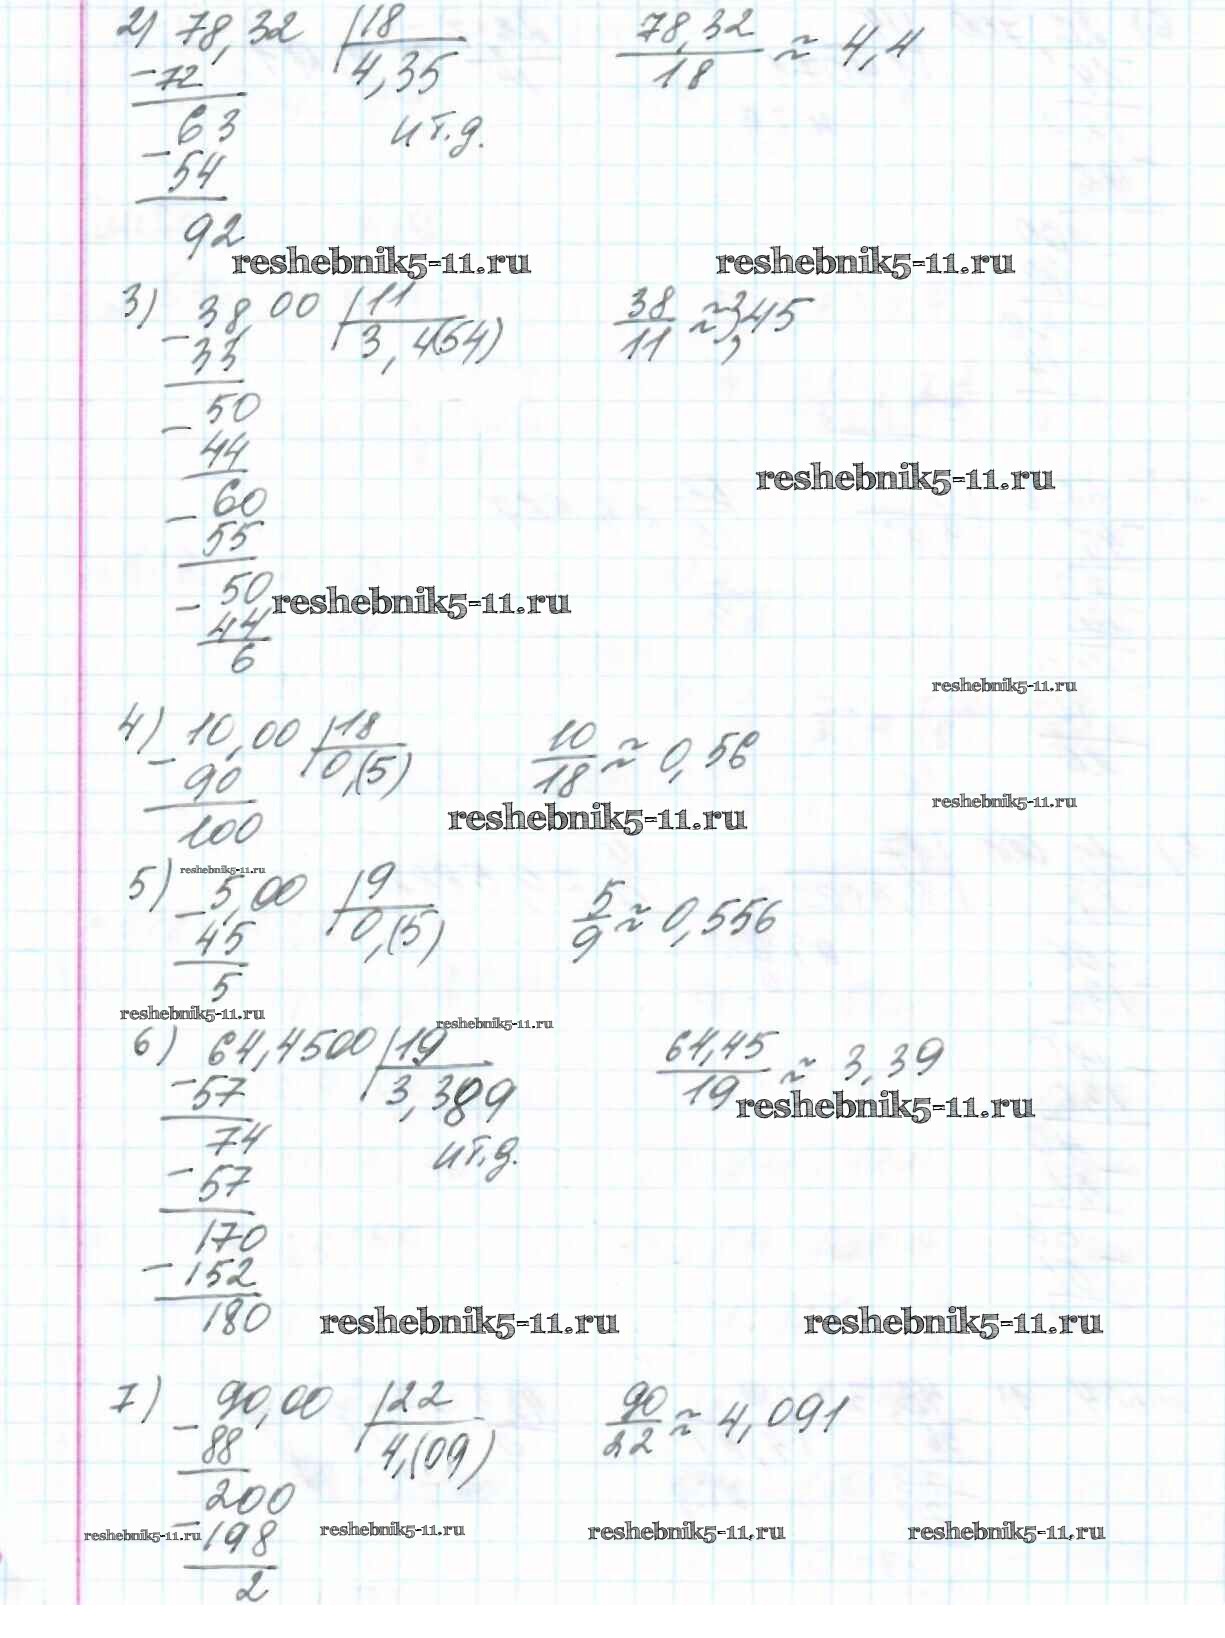 2) 78,32 | 18 78,32/18 ≈ 4,4
- 72 4,35
63 и т.д.
- 54
92
reshebnik5-11.ru reshebnik5-11.ru
3) 38,00 | 11 38/11 ≈ 3,45
- 33 3,4(54)
50
- 44
reshebnik5-11.ru
60
- 55
50
reshebnik5-11.ru
- 44
6
reshebnik5-11.ru
4) 10,00 | 18 10/18 ≈ 0,56
- 90 0,(5)
reshebnik5-11.ru
100 reshebnik5-11.ru
reshebnik5-11.ru
5) 5,00 | 9 5/9 ≈ 0,556
- 45 0,(5)
5
reshebnik5-11.ru reshebnik5-11.ru
6) 64,4500 | 19 64,45/19 ≈ 3,39
- 57 3,389
reshebnik5-11.ru
74 и т.д.
- 57
170
- 152
180 reshebnik5-11.ru reshebnik5-11.ru
7) 90,00 | 22 90/22 ≈ 4,091
- 88 4,(09)
200
reshebnik5-11.ru - 198 reshebnik5-11.ru reshebnik5-11.ru reshebnik5-11.ru
2